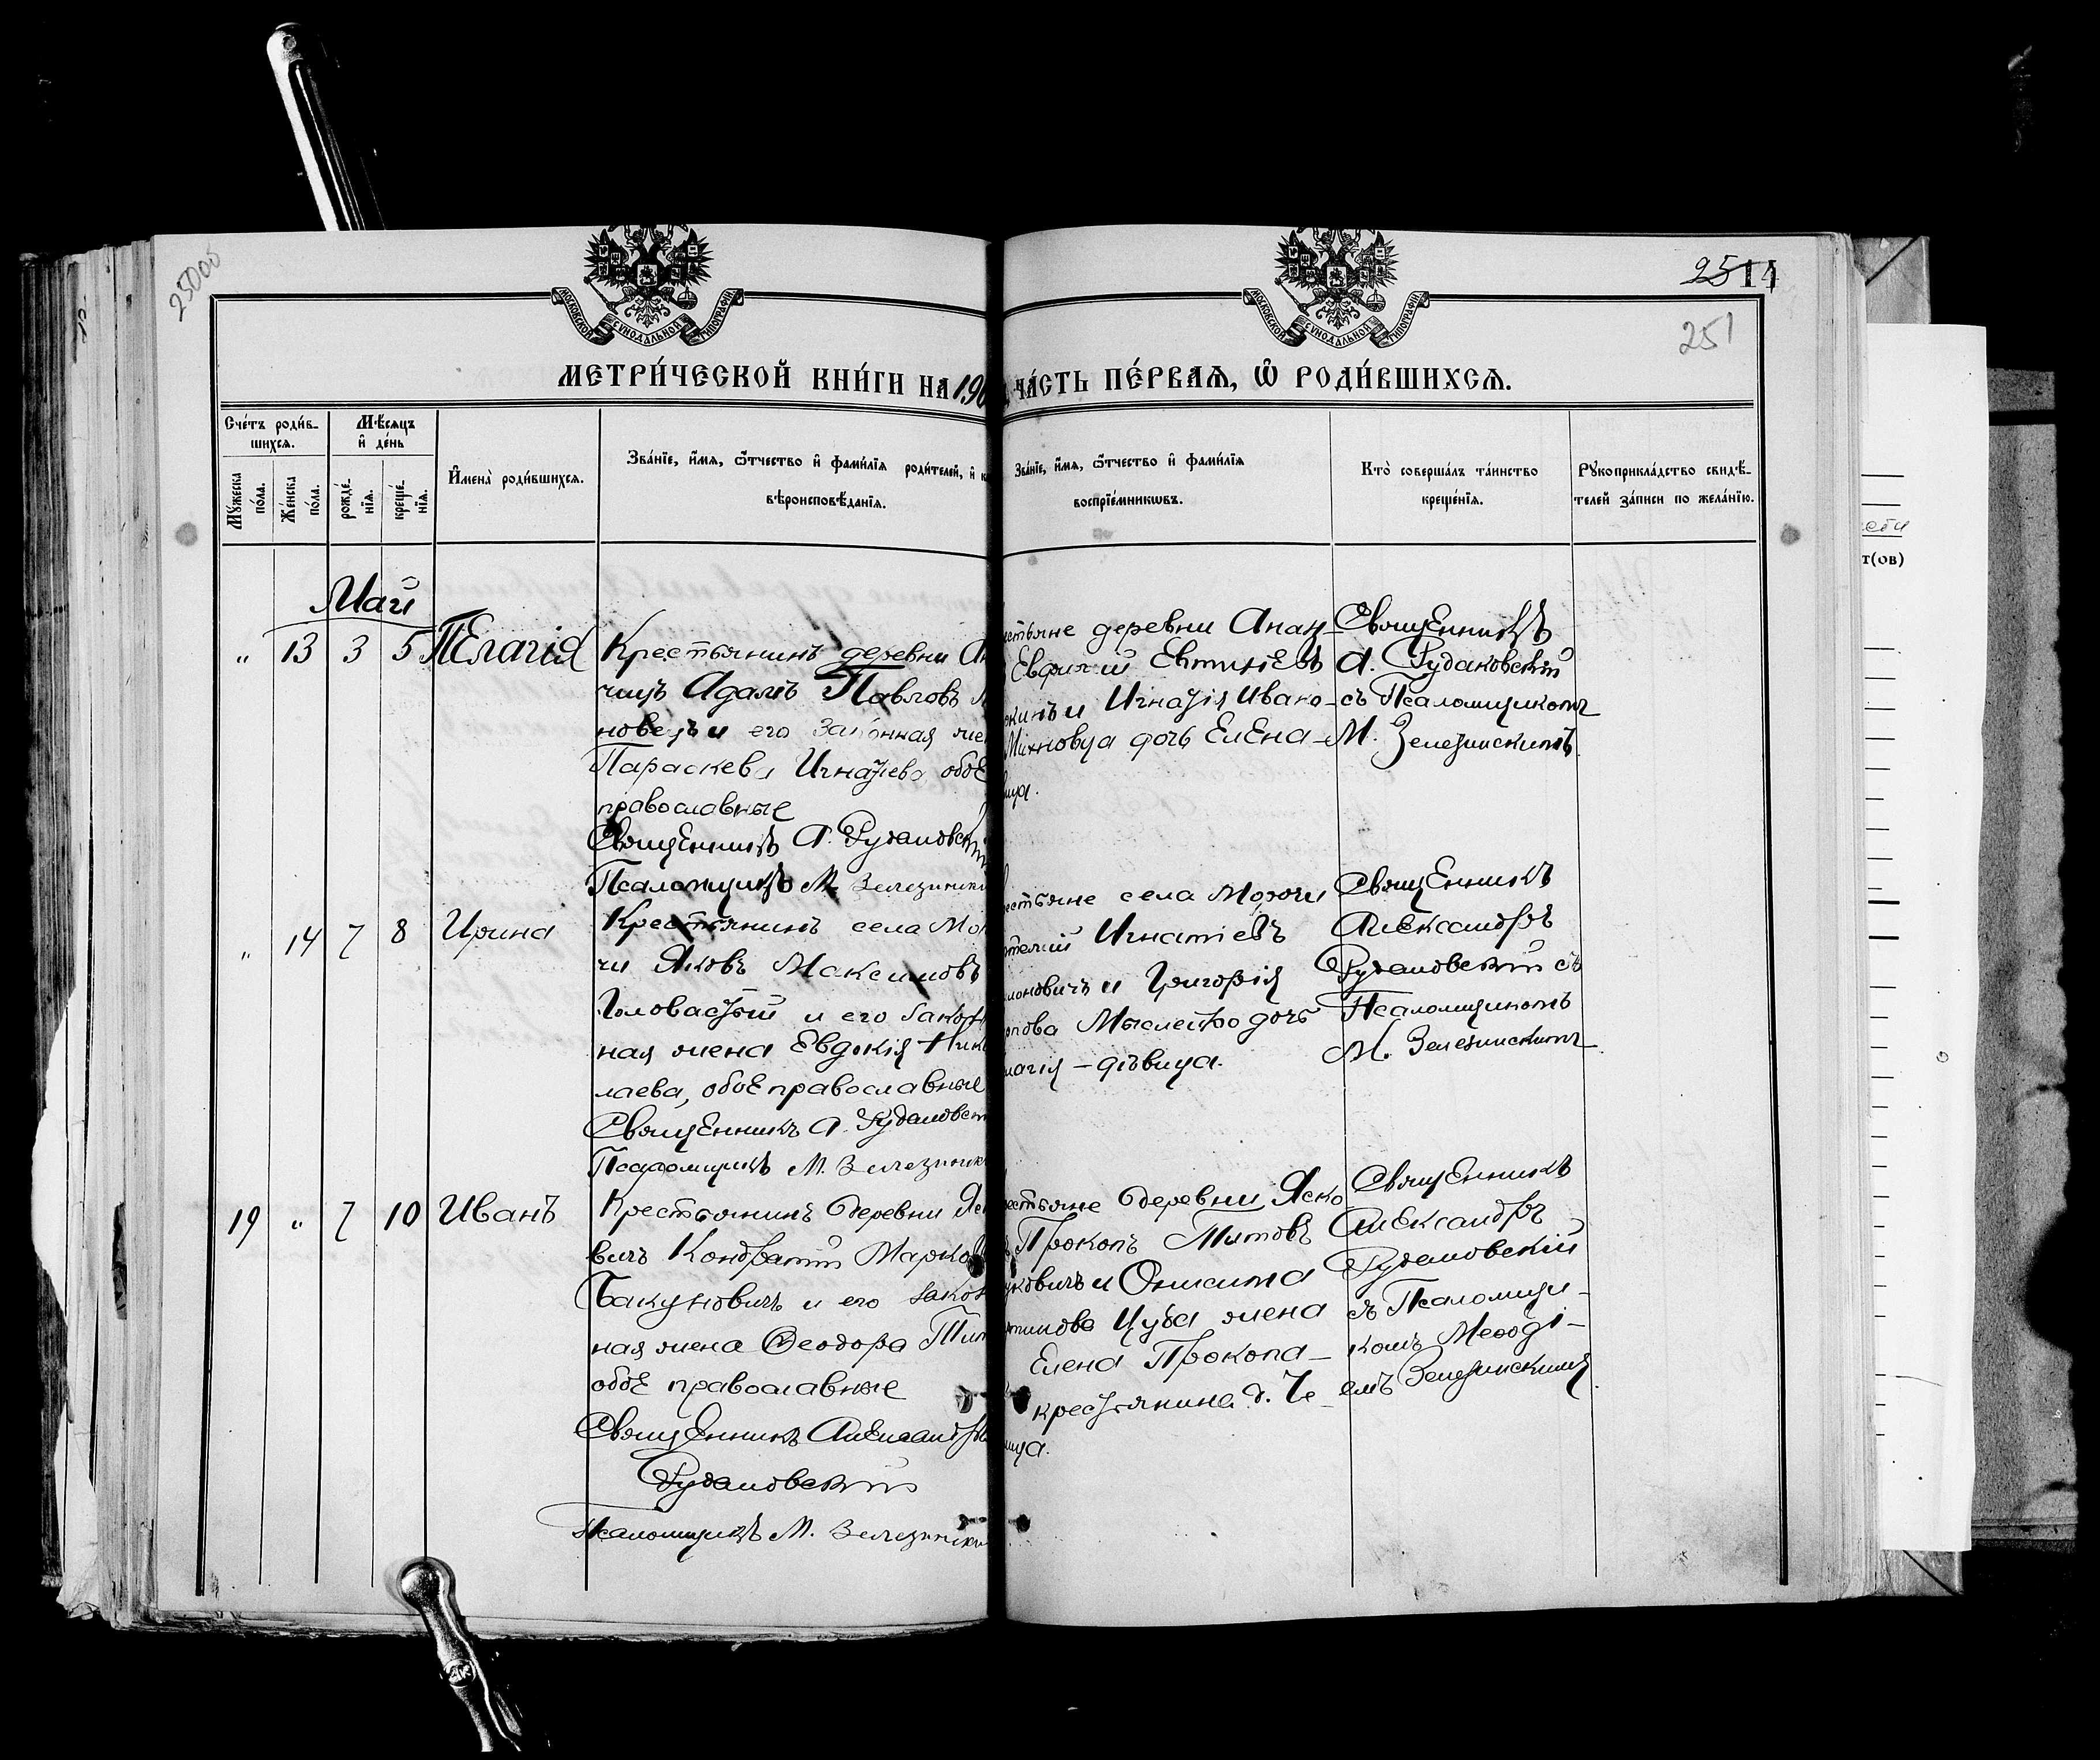 25000
2514
251
МОСКОВСКОЙ СУНОДАЛЬНОЙ ТИПОГРАФІИ
МОСКОВСКОЙ СУНОДАЛЬНОЙ ТИПОГРАФІИ
МЕТРИ́ЧЕСКОЙ КНИ́ГИ НА 190
ЧА́СТЬ ПЕ́РВАѦ, Ѽ РОДИ́ВШИХСѦ.
Сче́тъ роди́в-
шихсѧ.
Мꙋ́жеска по́ла.
Же́нска по́ла.
Мѣ́сѧцъ
и҆ де́нь
рожде́-
нїѧ.
креще́-
нїѧ.
И҆мена̀ роди́вшихсѧ.
Зва́нїе, и҆́мѧ, ѻ҆́тчество и҆ фами́лїѧ родителей, и҆ к
вѣроисповѣ́данїѧ.
Зва́нїе, и҆́мѧ, ѻ҆́тчество и҆ фами́лїѧ
воспрїе́мникѡвъ.
Кто̀ соверша́лъ та́инство
креще́нїѧ.
Рꙋкоприкла́дство свидѣ́-
телей за́писи по жела́нїю.
Май
" 13 3 5 Пелагія
Крестьянинъ деревни Ан
чицъ Адамъ Павловъ М
новецъ и его законная же
Параскева Игнатіева, обое
православные
Священникъ А. Рудаковскій
Псаломщикъ М. Зелезински
естьяне деревни Анан-
Евфимій Евтихіевъ
жинъ и Игнатія Ивано-
Михновца дочь Елена-
вица.
Священникъ
А. Рудаковскій
съ Псаломщикомъ
М. Зелезинскимъ.
" 14 7 8 Ирина
Крестьянинъ села Мо
чи Яковъ Максимовъ
Головатый и его закон
ная жена Евдокія Нико
лаева, обое православные
Священникъ А. Рудаковск
Псаломщикъ М. Зелезинск
естьяне села Морочи
Игнатіевъ
моновичъ и Григорія
пова Мыслейко дочь
лагія - дѣвица.
Священникъ
Александръ
Рудаковскій съ
Псаломщикомъ
М. Зелезинскимъ
19 " 7 10 Иванъ
Крестьянинъ деревни Яс
вичъ Кондратій Марков
Бакуновичъ и его закон
ная жена Ѳеодора Тит
обое православные
Священникъ Александръ
Рудаковскій
Псаломщикъ М. Зелезински
естьяне деревни Яско
Прокопъ Титовъ
уковичъ и Онисима
тинова Цуба жена
Елена Прокопа-
крестьянина д. Че-
ица.
Священникъ
Александръ
Рудаковскій
съ Псаломщи-
комъ Меѳоді-
емъ Зелезинскимъ.
т(ов)